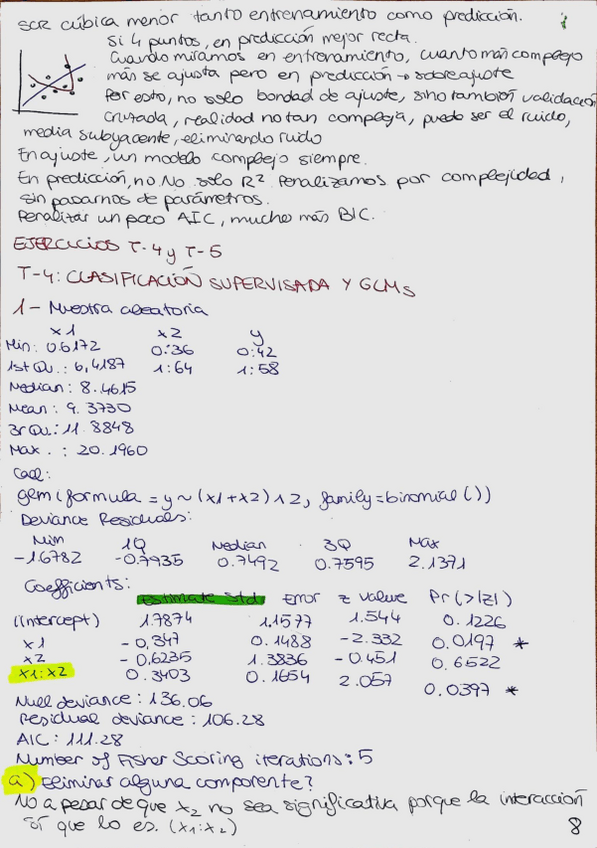 SCR cúbica menor tanto entrenamiento como predicción.
Si 4 puntos, en predicción mejor recta.
Cuando miramos en entrenamiento, cuanto más complejo
más se ajusta pero en predicción → sobreajuste
Por esto, no solo bondad de ajuste, sino también validación
cruzada, realidad no tan compleja, puede ser el ruido,
media subyacente, eliminando ruido
En ajuste, un modelo complejo siempre.
En predicción, no. No solo R². Penalizamos por complejidad,
sin pasarnos de parámetros.
Penalizar un poco AIC, mucho más BIC.
EJERCICIOS T-4 y T-5
T-4: CLASIFICACIÓN SUPERVISADA Y GLMs
1 - Muestra aleatoria
x1 x2 y
Min: 0.6172 0:36 0:42
1st Qu.: 6,4187 1:64 1:58
Median: 8.4615
Mean: 9.3730
3r Qu.: 11.8848
Max. : 20.1960
Call:
glm(formula = y ~ (x1+x2)^2, family=binomial())
Deviance Residuals:
Min 1Q Median 3Q Max
-1.6782 -0.7935 0.7492 0.7595 2.1371
Coefficients:
Estimate Std. Error z value Pr(>|z|)
(Intercept) 1.7874 1.1577 1.544 0.1226
x1 -0.347 0.1488 -2.332 0.0197 *
x2 -0.6235 1.3836 -0.451 0.6522
x1:x2 0.3403 0.1654 2.057 0.0397 *
Null deviance: 136.06
Residual deviance: 106.28
AIC: 111.28
Number of Fisher Scoring iterations: 5
a) Eliminar alguna componente?
No a pesar de que x2 no sea significativa porque la interacción
sí que lo es. (x1:x2)
8